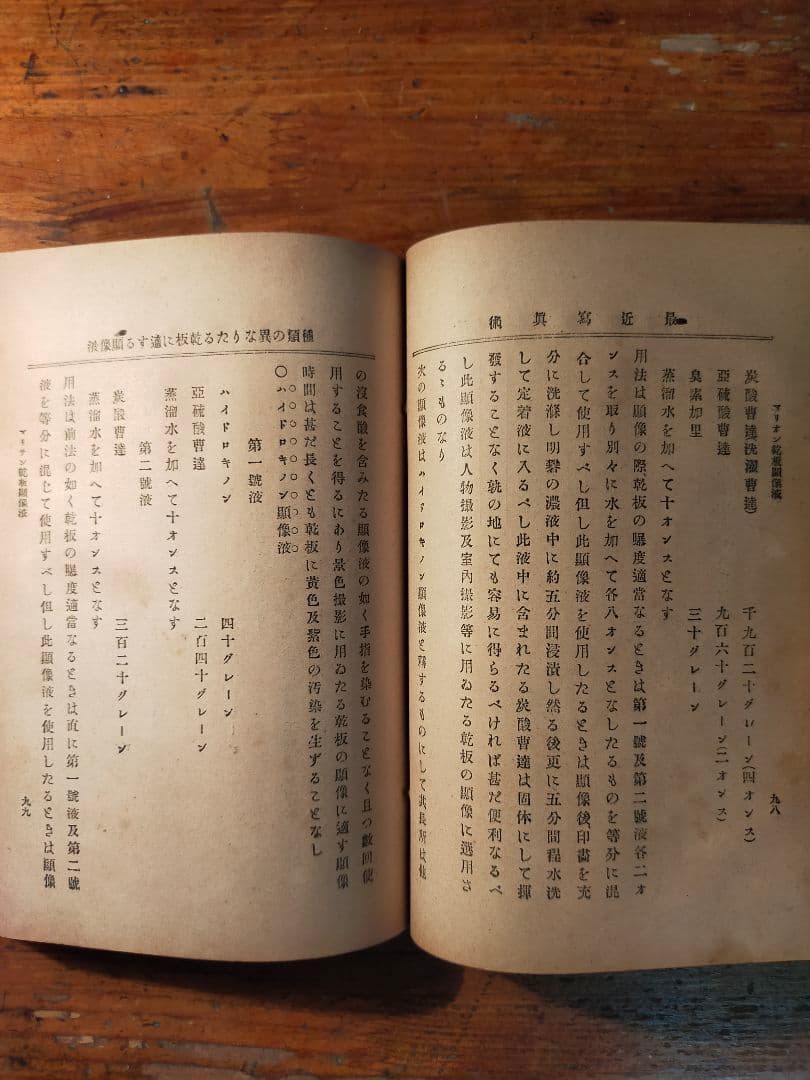 最近寫眞術
マリオン乾板顯像液
九八
炭酸曹達(洗濯曹達) 千九百二十グレーン(四オンス)
亞硫酸曹達 九百六十グレーン(二オンス)
臭素加里 三十グレーン
蒸溜水を加へて十オンスとなす
用法は顯像の際乾板の曝度適當なるときは第一號及第二號液各二オ
ンスを取り別々に水を加へて各八オンスとなしたるものを等分に混
合して使用すべし但し此顯像液を使用したるときは顯像後印畫を充
分に洗滌し明礬の濃液中に約五分間浸漬し然る後更に五分間程水洗
して定着液に入るべし此液中に含まれたる炭酸曹達は固体にして揮
發することなく孰の地にても容易に得らるべければ甚だ便利なるべ
し此顯像液は人物撮影及室內撮影等に用ゐたる乾板の顯像に選用さ
るゝものなり
次の顯像液はハイドロキノン顯像液と稱するものにして其長所は他
種類の異なりたる乾板に適する顯像液
の沒食酸を含みたる顯像液の如く手指を染むることなく且つ數回使
用することを得るにあり景色撮影に用ゐたる乾板の顯像に適す顯像
時間は甚だ長くとも乾板に黄色及紫色の汚染を生ずることなし
〇ハイドロキノン顯像液
第一號液
ハイドロキノン 四十グレーン
亞硫酸曹達 二百四十グレーン
蒸溜水を加へて十オンスとなす
第二號液
炭酸曹達 三百二十グレーン
蒸溜水を加へて十オンスとなす
用法は前法の如く乾板の曝度適當なるときは直に第一號液及第二號
液を等分に混じて使用すべし但し此顯像液を使用したるときは顯像
マリオン乾板顯像液
九九